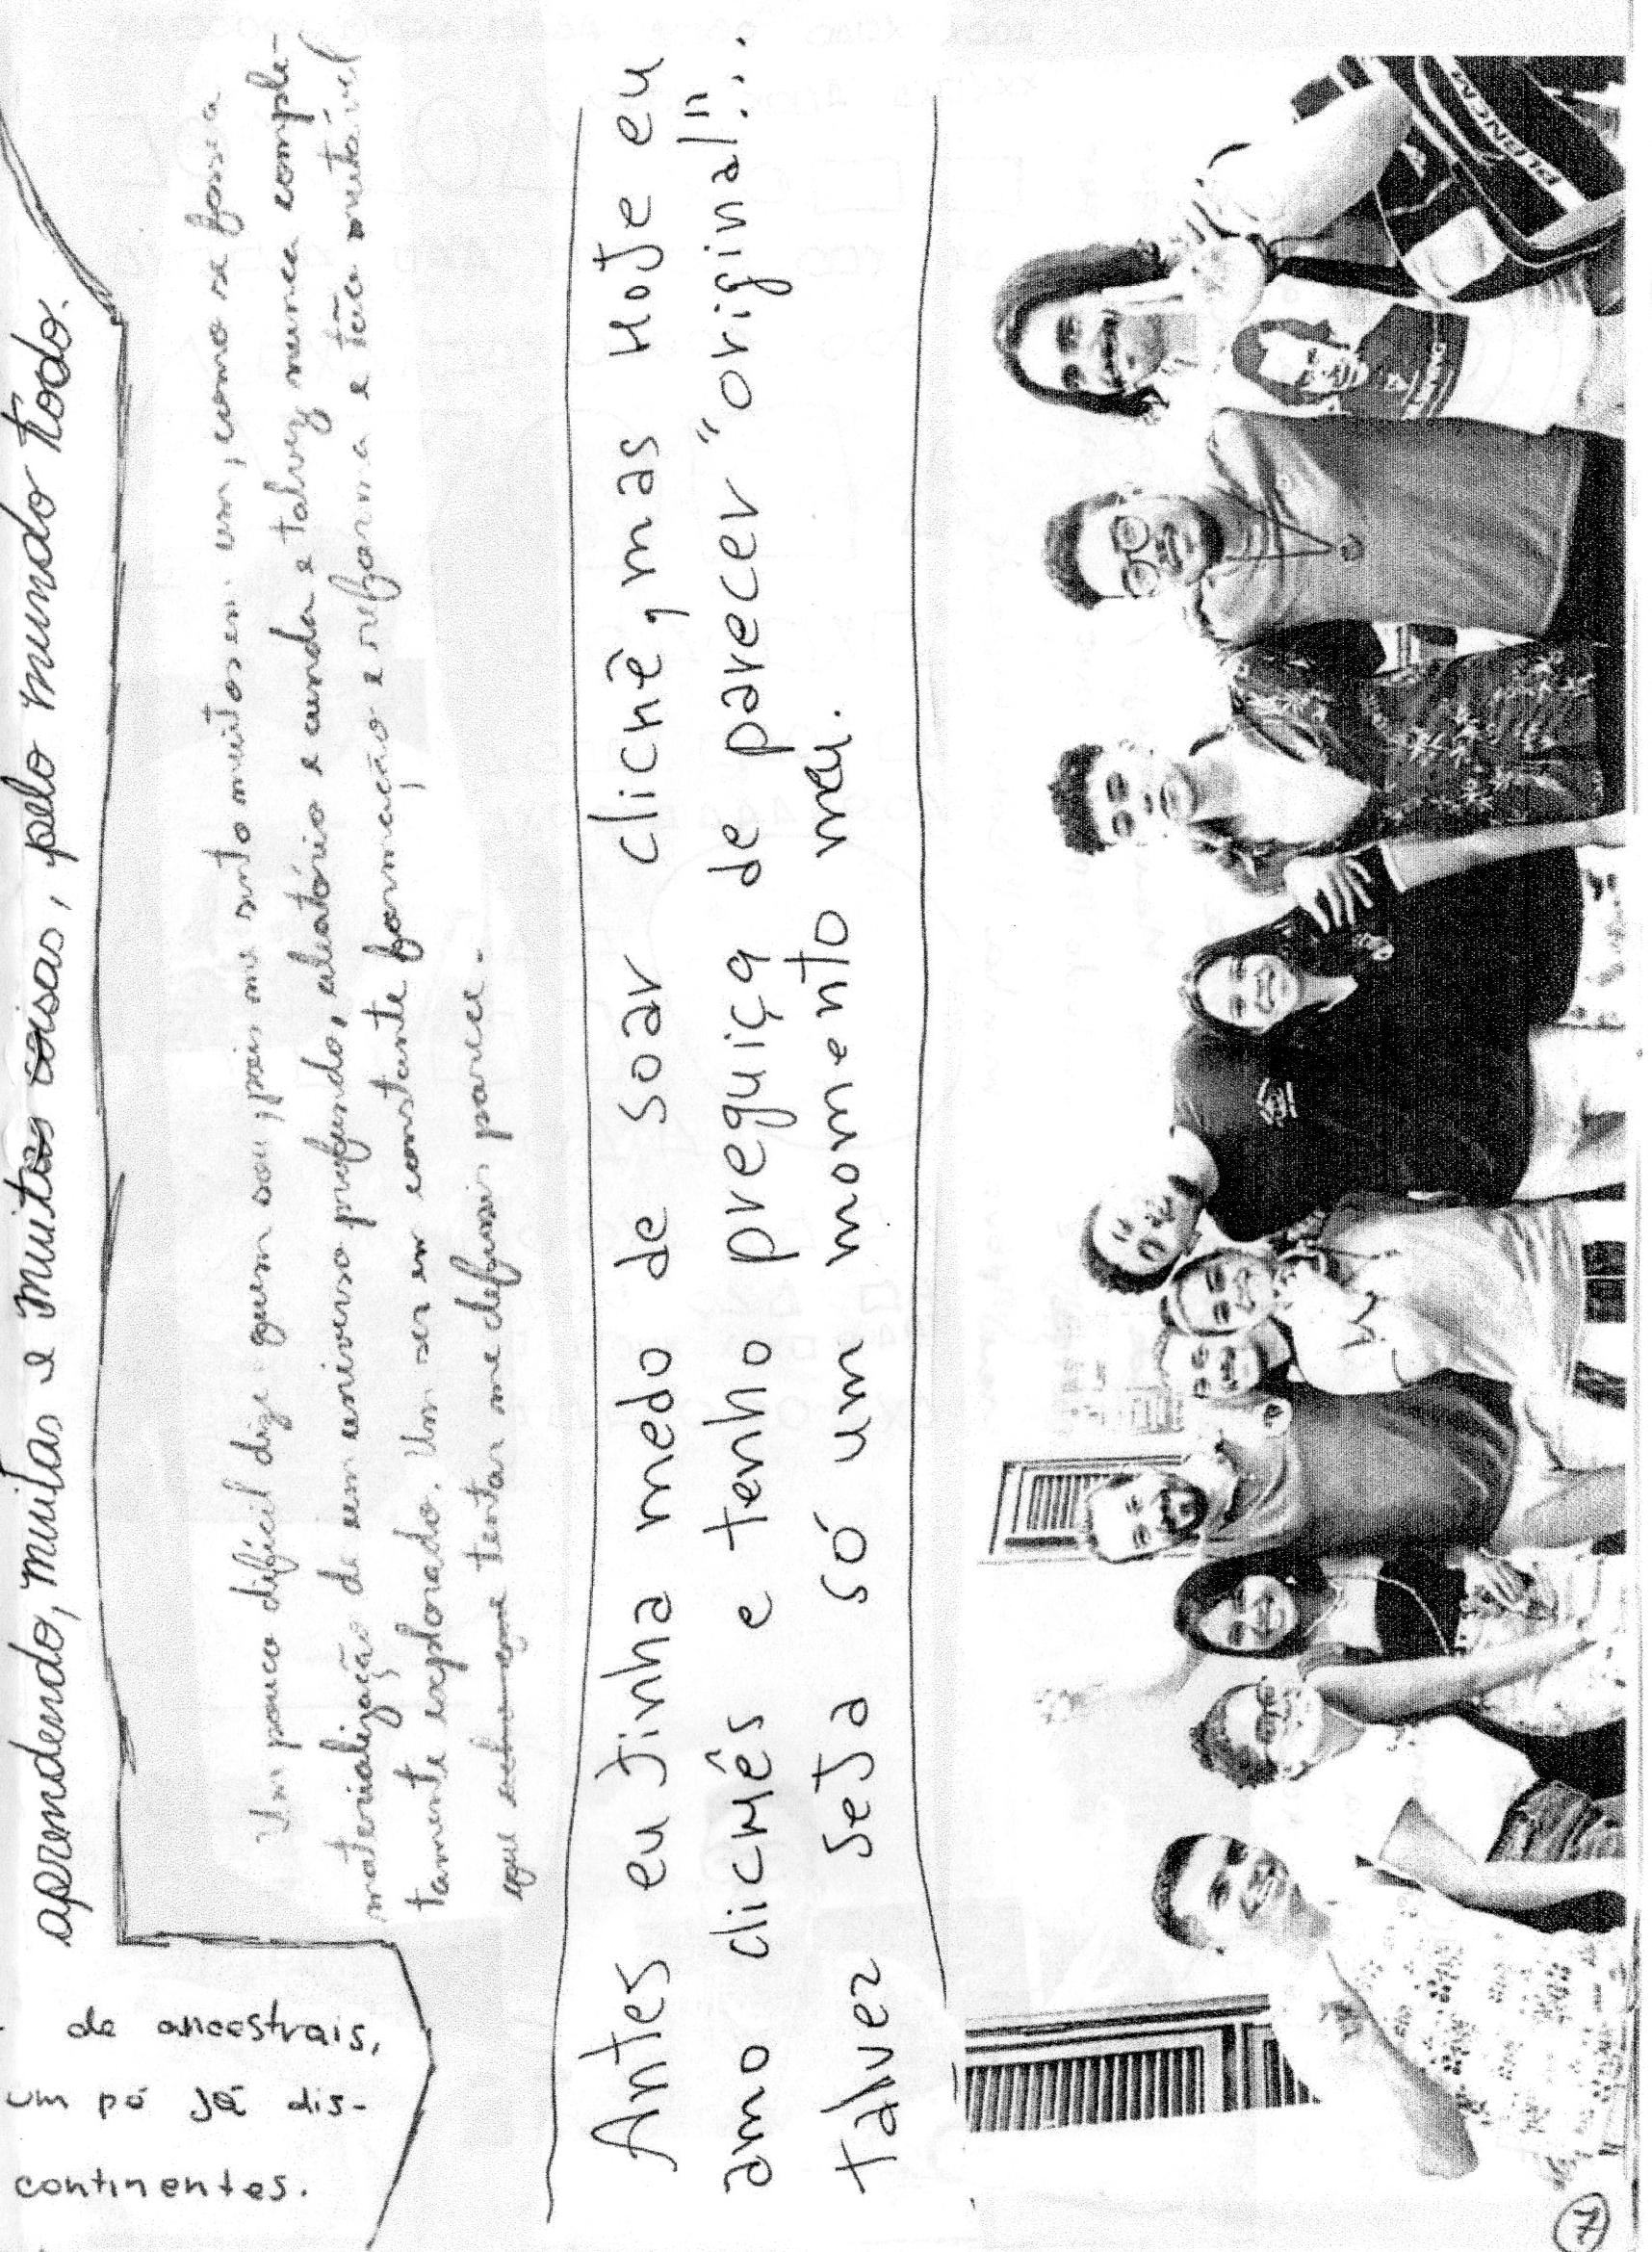 aprendendo, muitas e muitas coisas, pelo mundo todo.
de ancestrais,
um pó já dis-
continentes.
Um pouco difícil dizer quem sou, pois me sinto muitos em um, como se fosse a
materialização de um universo profundo, aleatório e ainda e talvez nunca comple-
tamente explorado. Um ser em constante formação e reforma e tão mutável
que tentar me definir parece.
Antes eu tinha medo de soar clichê, mas hoje eu
amo clichês e tenho preguiça de parecer "original"...
talvez seja só um momento meu.
7